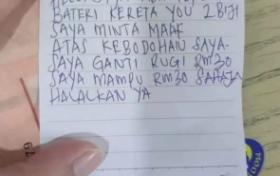 BATERI KERETA YOU 2 BIJI
SAYA MINTA MAAF
ATAS KEBODOHAN SAYA.
SAYA GANTI RUGI RM30
SAYA MAMPU RM30 SAHAJA
HALALKAN YA
19